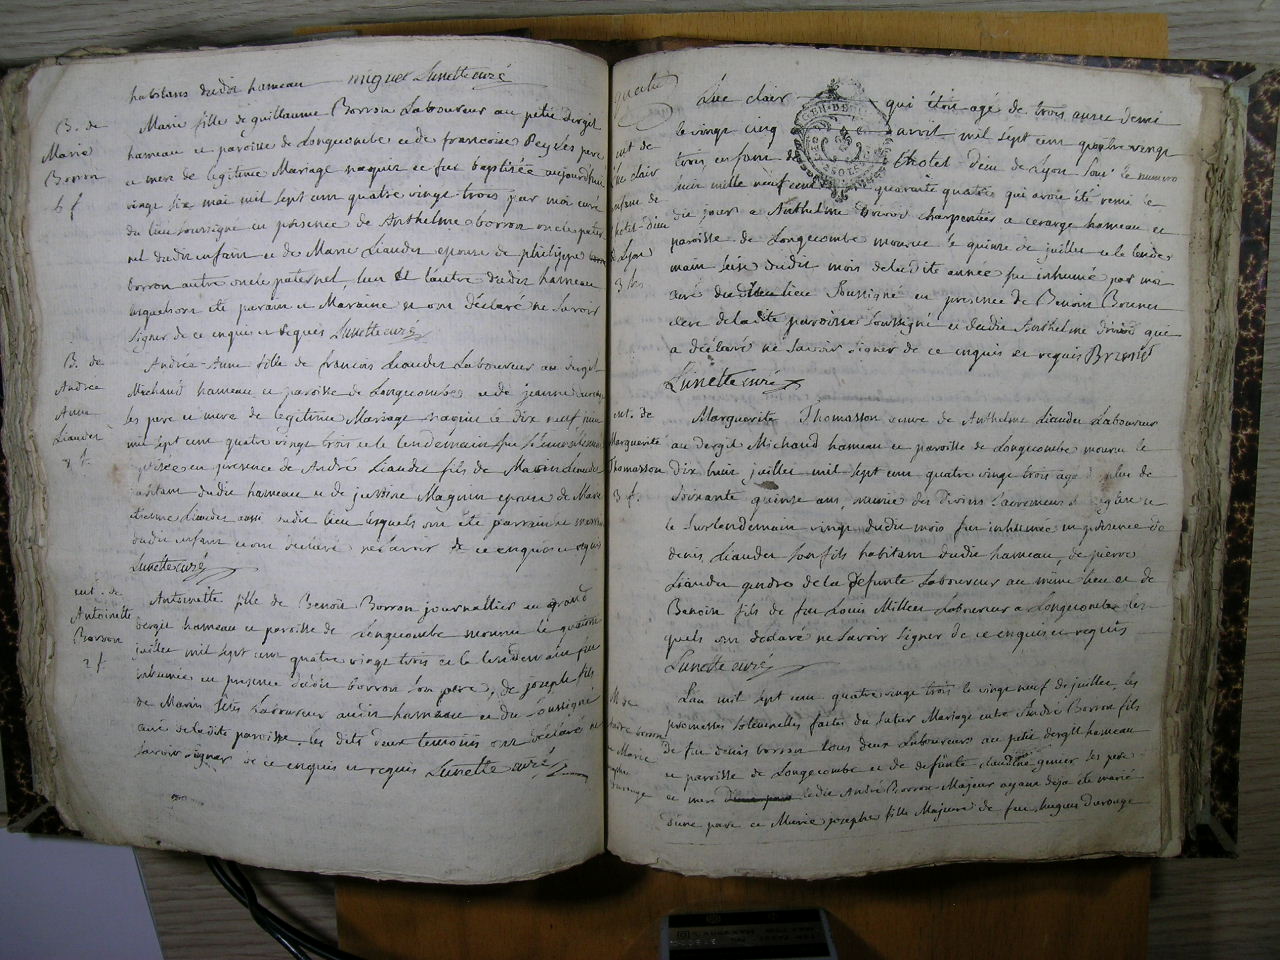 habitans dudit hameau miguet Lunette curé
B. de
Marie
Borron
6 f
Marie fille de guillaume Borron Laboureur au petit dergit
hameau et paroisse de Longecombe et de francoise Peysles pere
et mere de legitime Mariage naquit et fut baptisée aujourdhuy
vingt six mai mil sept cent quatre vingt trois par moi curé
du lieu soussigné en présence de Anthelme borron oncle pater
nel dudit enfant et de Marie Liaudet epouse de philippe
borron autre oncle paternel, l'un et l'autre dudit hameau
lesquels ont été parain et Maraine et ont déclaré ne savoir
signer de ce enquis et requis Lunette curé
B. de
Andrée
Anne
Liaudet
Andrée-Anne fille de francois Liaudet Laboureur au dergit
Michaud hameau et paroisse de Longecombe et de jeanne
les pere et mere de legitime Mariage naquit le dix neuf juin
mil sept cent quatre vingt trois et le lendemain fut
en présence de André Liaudet fils de Marin Liaudet
habitant dudit hameau et de Magnin epouse de
Liaudet aussi dudit lieu lesquels ont été parrain et
dudit enfant et ont déclaré ne savoir de ce enquis et requis
Lunette curé
ent. de
Antoinette
Borron
2 f.
Antoinette fille de Benoît Borron journallier au grand
dergit hameau et paroisse de Longecombe mourut le quatorze
juillet mil sept cent quatre vingt trois et le lendemain fut
inhumée en présence dudit borron son pere, de joseph fils
de Marin Laboureur audit hameau et du soussigné
curé de ladite paroisse. les dits deux temoins ont déclaré ne
savoir signer de ce enquis et requis Lunette curé
quatre
ent de
Luc clair
enfant de
l'hotel-dieu
de Lyon
3 f
Luc clair qui étoit agé de trois ans et demi
le vingt cinq avril mil sept cent quatre vingt
trois enfant de l'hotel-dieu de Lyon sous le numero
mille neuf cent quarante quatre qui avoit été remis le
dit jour a Anthelme charpentier a cerarge hameau et
paroisse de Longecombe mourut le quinze de juillet et le lende
main seize dudit mois de ladite année fut inhumé par moi
curé du dit lieu soussigné en présence de Benoit Bonnet
clerc de ladite paroisse soussigné et dudit Anthelme qui
a déclaré ne savoir signer de ce enquis et requis
Lunette curé
ent. de
Marguerite
Thomasson
3 f.
Marguerite Thomasson veuve de Anthelme Liaudet Laboureur
au dergit Michaud hameau et paroisse de Longecombe mourut le
dix huit juillet mil sept cent quatre vingt trois agée de plus de
soixante quinze ans, munie des divins sacremens de l'église et
le surlendemain vingt dudit mois fut inhumée en présence de
denis Liaudet son fils habitant dudit hameau, de pierre
Liaudet gendre de la defunte Laboureur au même lieu et de
Benoit fils de feu Louis Millet Laboureur a Longecombe les
quels ont déclaré ne savoir signer de ce enquis et requis
Lunette curé
M. de
andré borron
et Marie
josephe
durouge
L'an mil sept cent quatre vingt trois le vingt neuf de juillet, les
promesses solemnelles faites du futur Mariage entre André Borron fils
de feu denis borron tous deux Laboureurs au petit dergit hameau
et paroisse de Longecombe et de defunte claudine les pere
et mere ledit André Borron Majeur ayant deja été marié
d'une part et Marie josephe fille Majeure de feu hugues Durouge